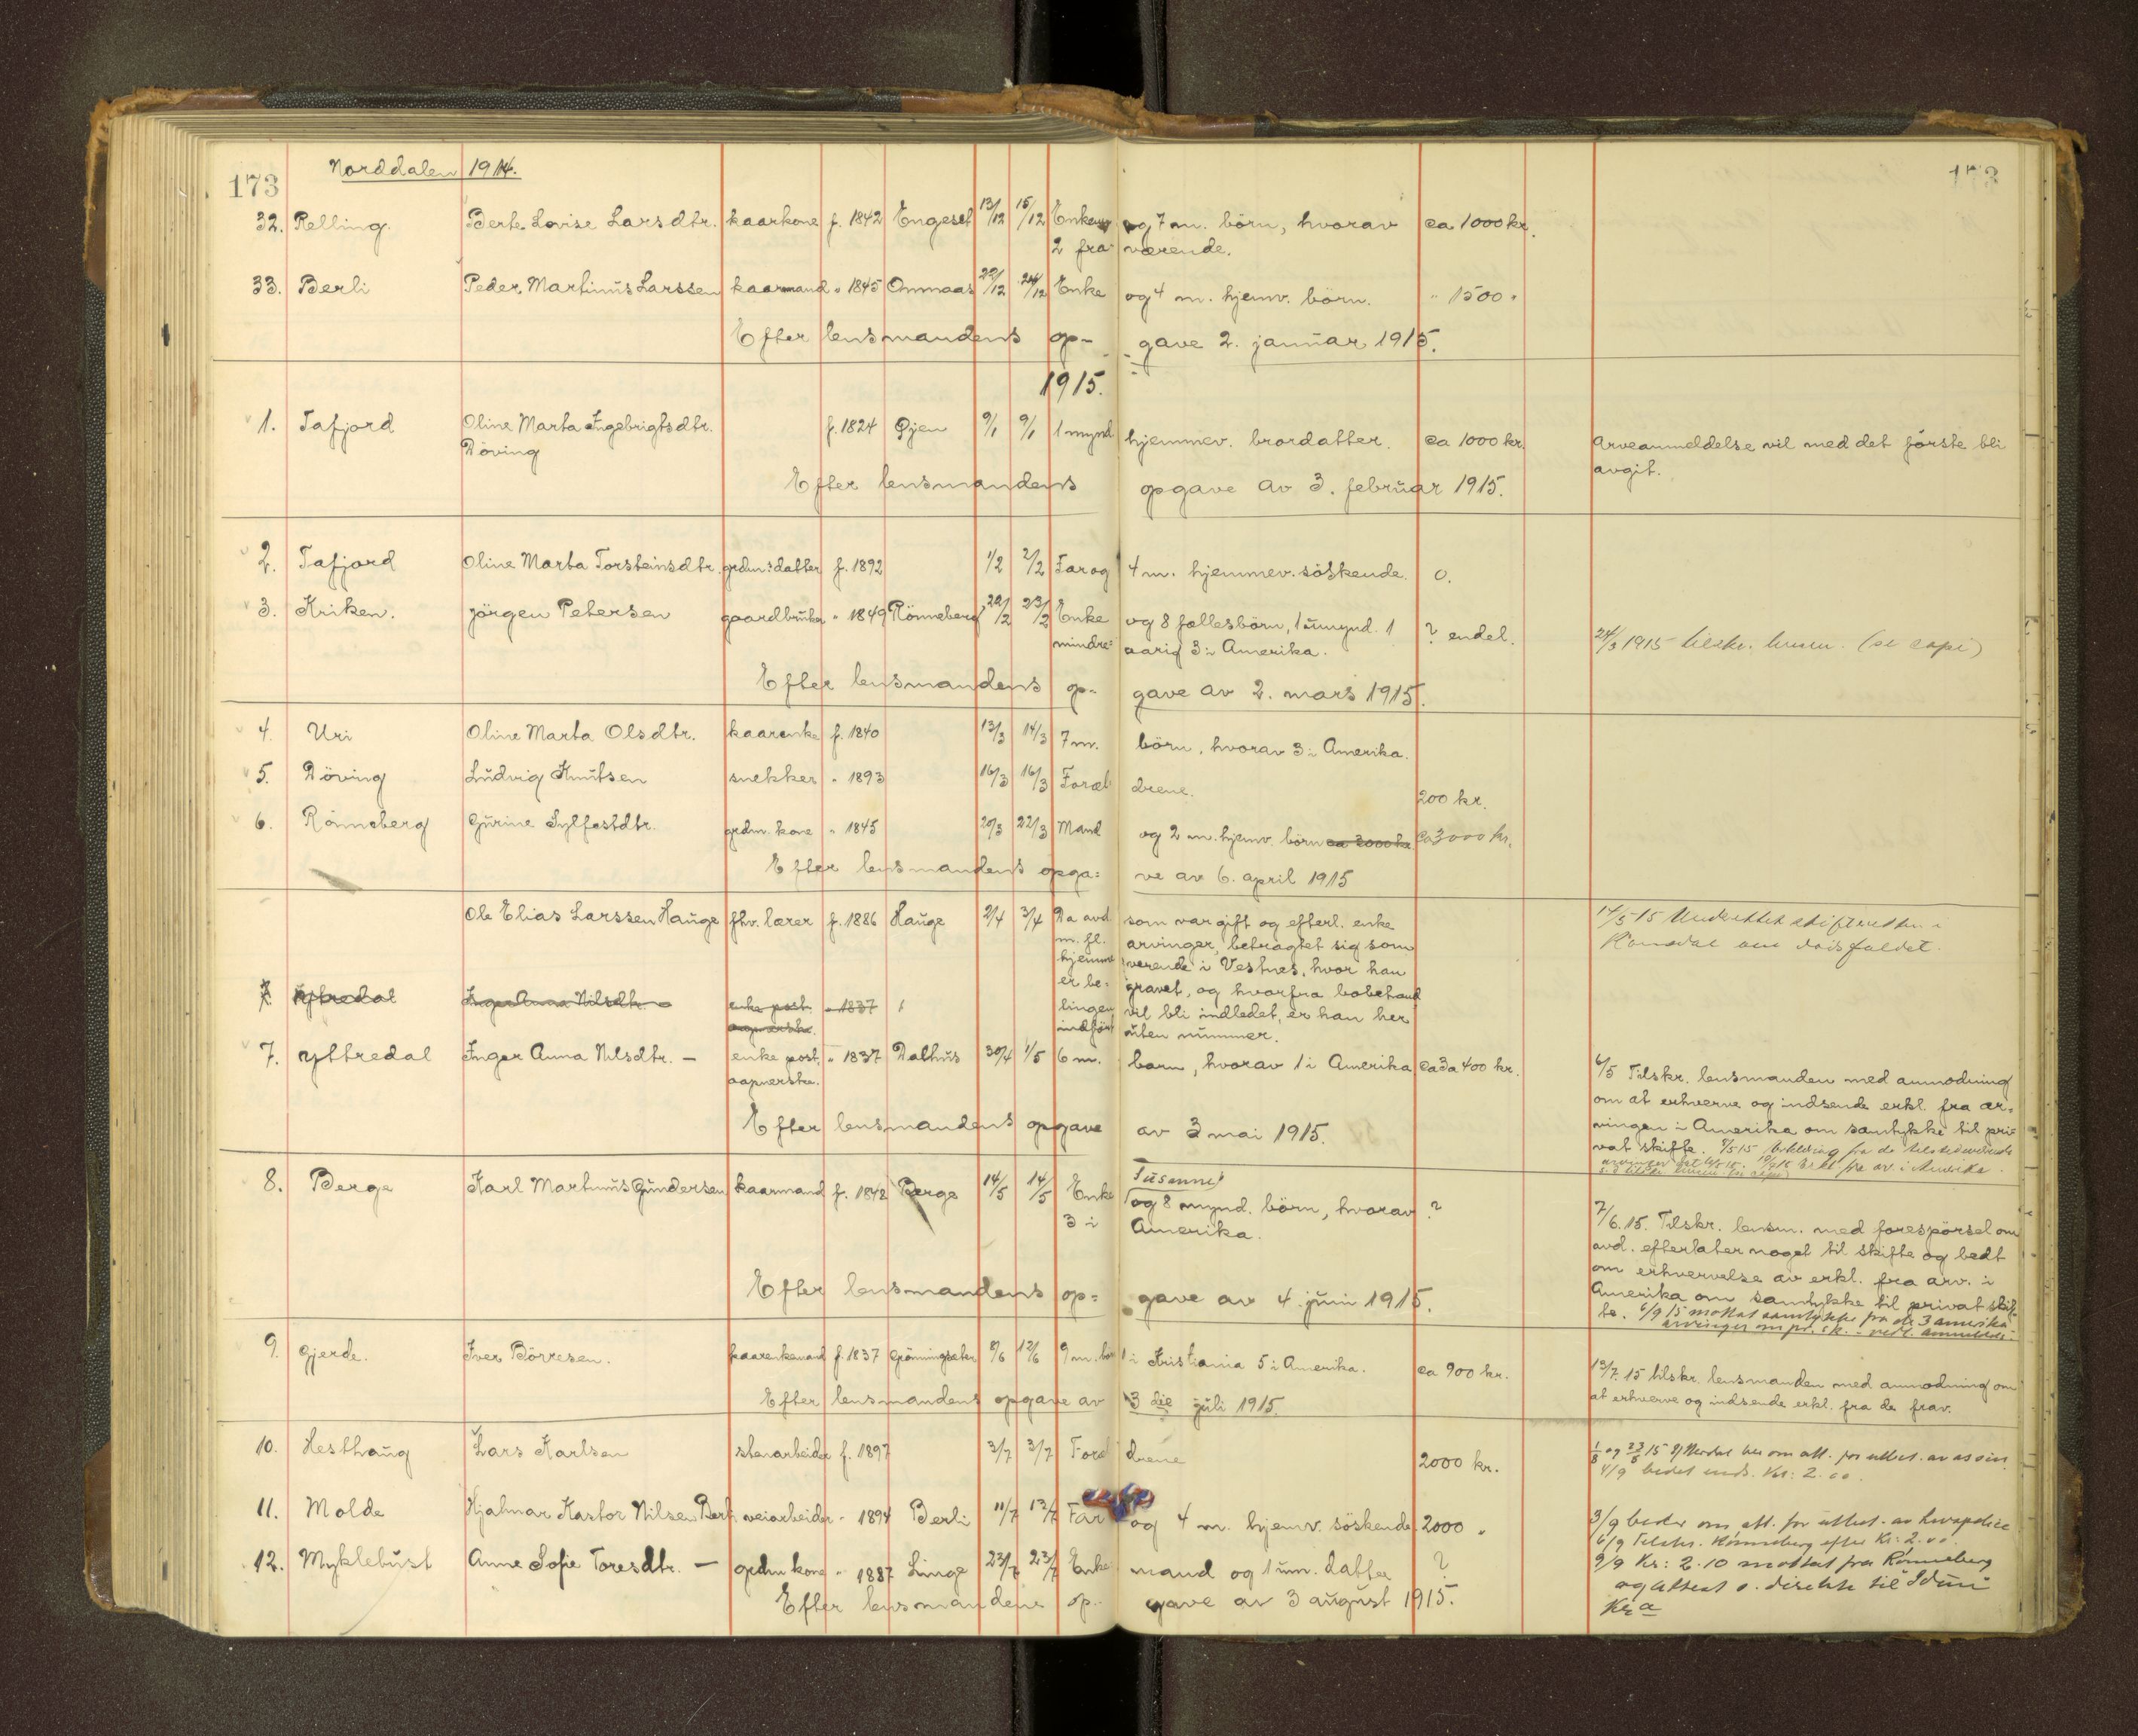 173 Norddalen 1914. 173
32. Relling. Berte Lovise Larsdtr. kaarkone f. 1842 Engeset 13/12 15/12 Enkem. og 7 m. börn, hvorav ca 1000 kr.
2 fra- værende.
33. Berli Peder Martinus Larssen kaarmand " 1845 Ommaas 22/12 24/12 Enke og 4 m. hjemv. börn. " 1500 "
Efter lensmandens op- gave 2. januar 1915.
1915.
1. Tafjord Oline Marta Ingebrigtsdtr. f. 1824 Öjen 9/1 9/1 1 mynd hjemmev. brordatter. ca 1000 kr. Arveanmeldelse vil med det förste bli
Döving avgit.
Efter lensmandens opgave av 3. februar 1915.
2. Tafjord Oline Marta Torsteinsdtr. grdm:s datter f. 1892 1/2 2/2 Far og 4 m. hjemmev. söskende. 0.
3. Kriken. Jörgen Petersen gaardbruker " 1849 Rönneberg 22/2 23/2 Enke og 8 fællesbörn, 1 umynd. 1 ? endel. 24/3 1915 tilskr. lensm. (se copi)
mindre= aarig 3 i Amerika.
Efter lensmandens op= gave av 2. mars 1915.
4. Uri Oline Marta Olsdtr. kaarenke f. 1840 13/3 14/3 7 m. börn, hvorav 3 i Amerika.
5. Döving Ludvig Knutsen snekker " 1893 16/3 16/3 Foræl drene. 200 kr.
6. Rönneberg Gurine Sylfestdtr. grdm. kone " 1845 20/3 22/3 Mand og 2 m. hjemv. börn ca 3000 kr. ca 3000 kr.
Efter lensmandens opga= ve av 6. april 1915
Ole Elias Larssen Hauge fhv. lærer f. 1886 Hauge 2/4 3/4 Da avd. som var gift og efterl. enke 14/5 15 Underettet skifteretten i
m. fl. arvinger, betragtet sig som Romsdal om dödsfaldet.
hjemme værende i Vestnes, hvor han
er be= gravet, og hvorfra bobehand
7. Yttredal Inger Anna Nilsdtr. enke post. " 1837 lingen vil bli indledet, er han her
aapnerske. indfört uten nummer.
7. Yttredal Inger Anna Nilsdtr. — enke post. " 1837 Dalhus 30/4 1/5 6 m. barn, hvorav 1 i Amerika ca 400 kr. 6/5 Tilskr. lensmanden med anmodning
aapnerske. om at erhverve og indsende erkl. fra ar=
Efter lensmandens opgave av 3 mai 1915. vingen i Amerika om samtykke til pri=
vat skifte. fra de tilstedeværende
fra arv. i Amerika.
8. Berge Karl Martinus Gundersen kaarmand f. 1842 Berge 14/5 14/5 Enke (Susanne) og 8 mynd. börn, hvorav ? 7/6.15. Tilskr. lensm. med forespörsel om
3 i Amerika. avd. efterlater noget til skifte og bedt
om erhvervelse av erkl. fra arv. i
Efter lensmandens op= gave av 4. juni 1915. Amerika om samtykke til privat skif=
te. 6/9 15 mottat samtykke fra de 3 amerika
arvinger om pr. sk.
9. Gjerde. Iver Börresen. kaarenkemand f. 1837 Grönningsæter 8/6 12/6 9 m. börn 1 i Kristiania 5 i Amerika. ca 900 kr. 13/7.15 tilskr. lensmanden med anmodning om
Efter lensmandens opgave av 3 die juli 1915. at erhverve og indsende erkl. fra de frav.
10. Hesthaug Lars Karlsen stenarbeider f. 1897 3/7 3/7 Forel drene 2000 kr. ber om att. for utbet. av assur.
4/9 bedet inds. Kr: 2.00.
11. Molde Hjalmar Kastor Nilsen Berli veiarbeider " 1894 Berli 11/7 12/7 Far og 4 m. hjemv. söskende. 2000 " 3/9 beder om att. for utbet. av livspolice
6/9 Tilskr. Rönneberg efter Kr: 2.00
12. Myklebust Anne Sofie Toresdtr. — grdm kone " 1887 Linge 23/7 23/7 Enke mand og 1 um. datter ? 9/9 Kr: 2.10 mottat fra Rönneberg
Efter lensmandens op- gave av 3 august 1915. og attest s. direkte til "Idun"
Kr.a